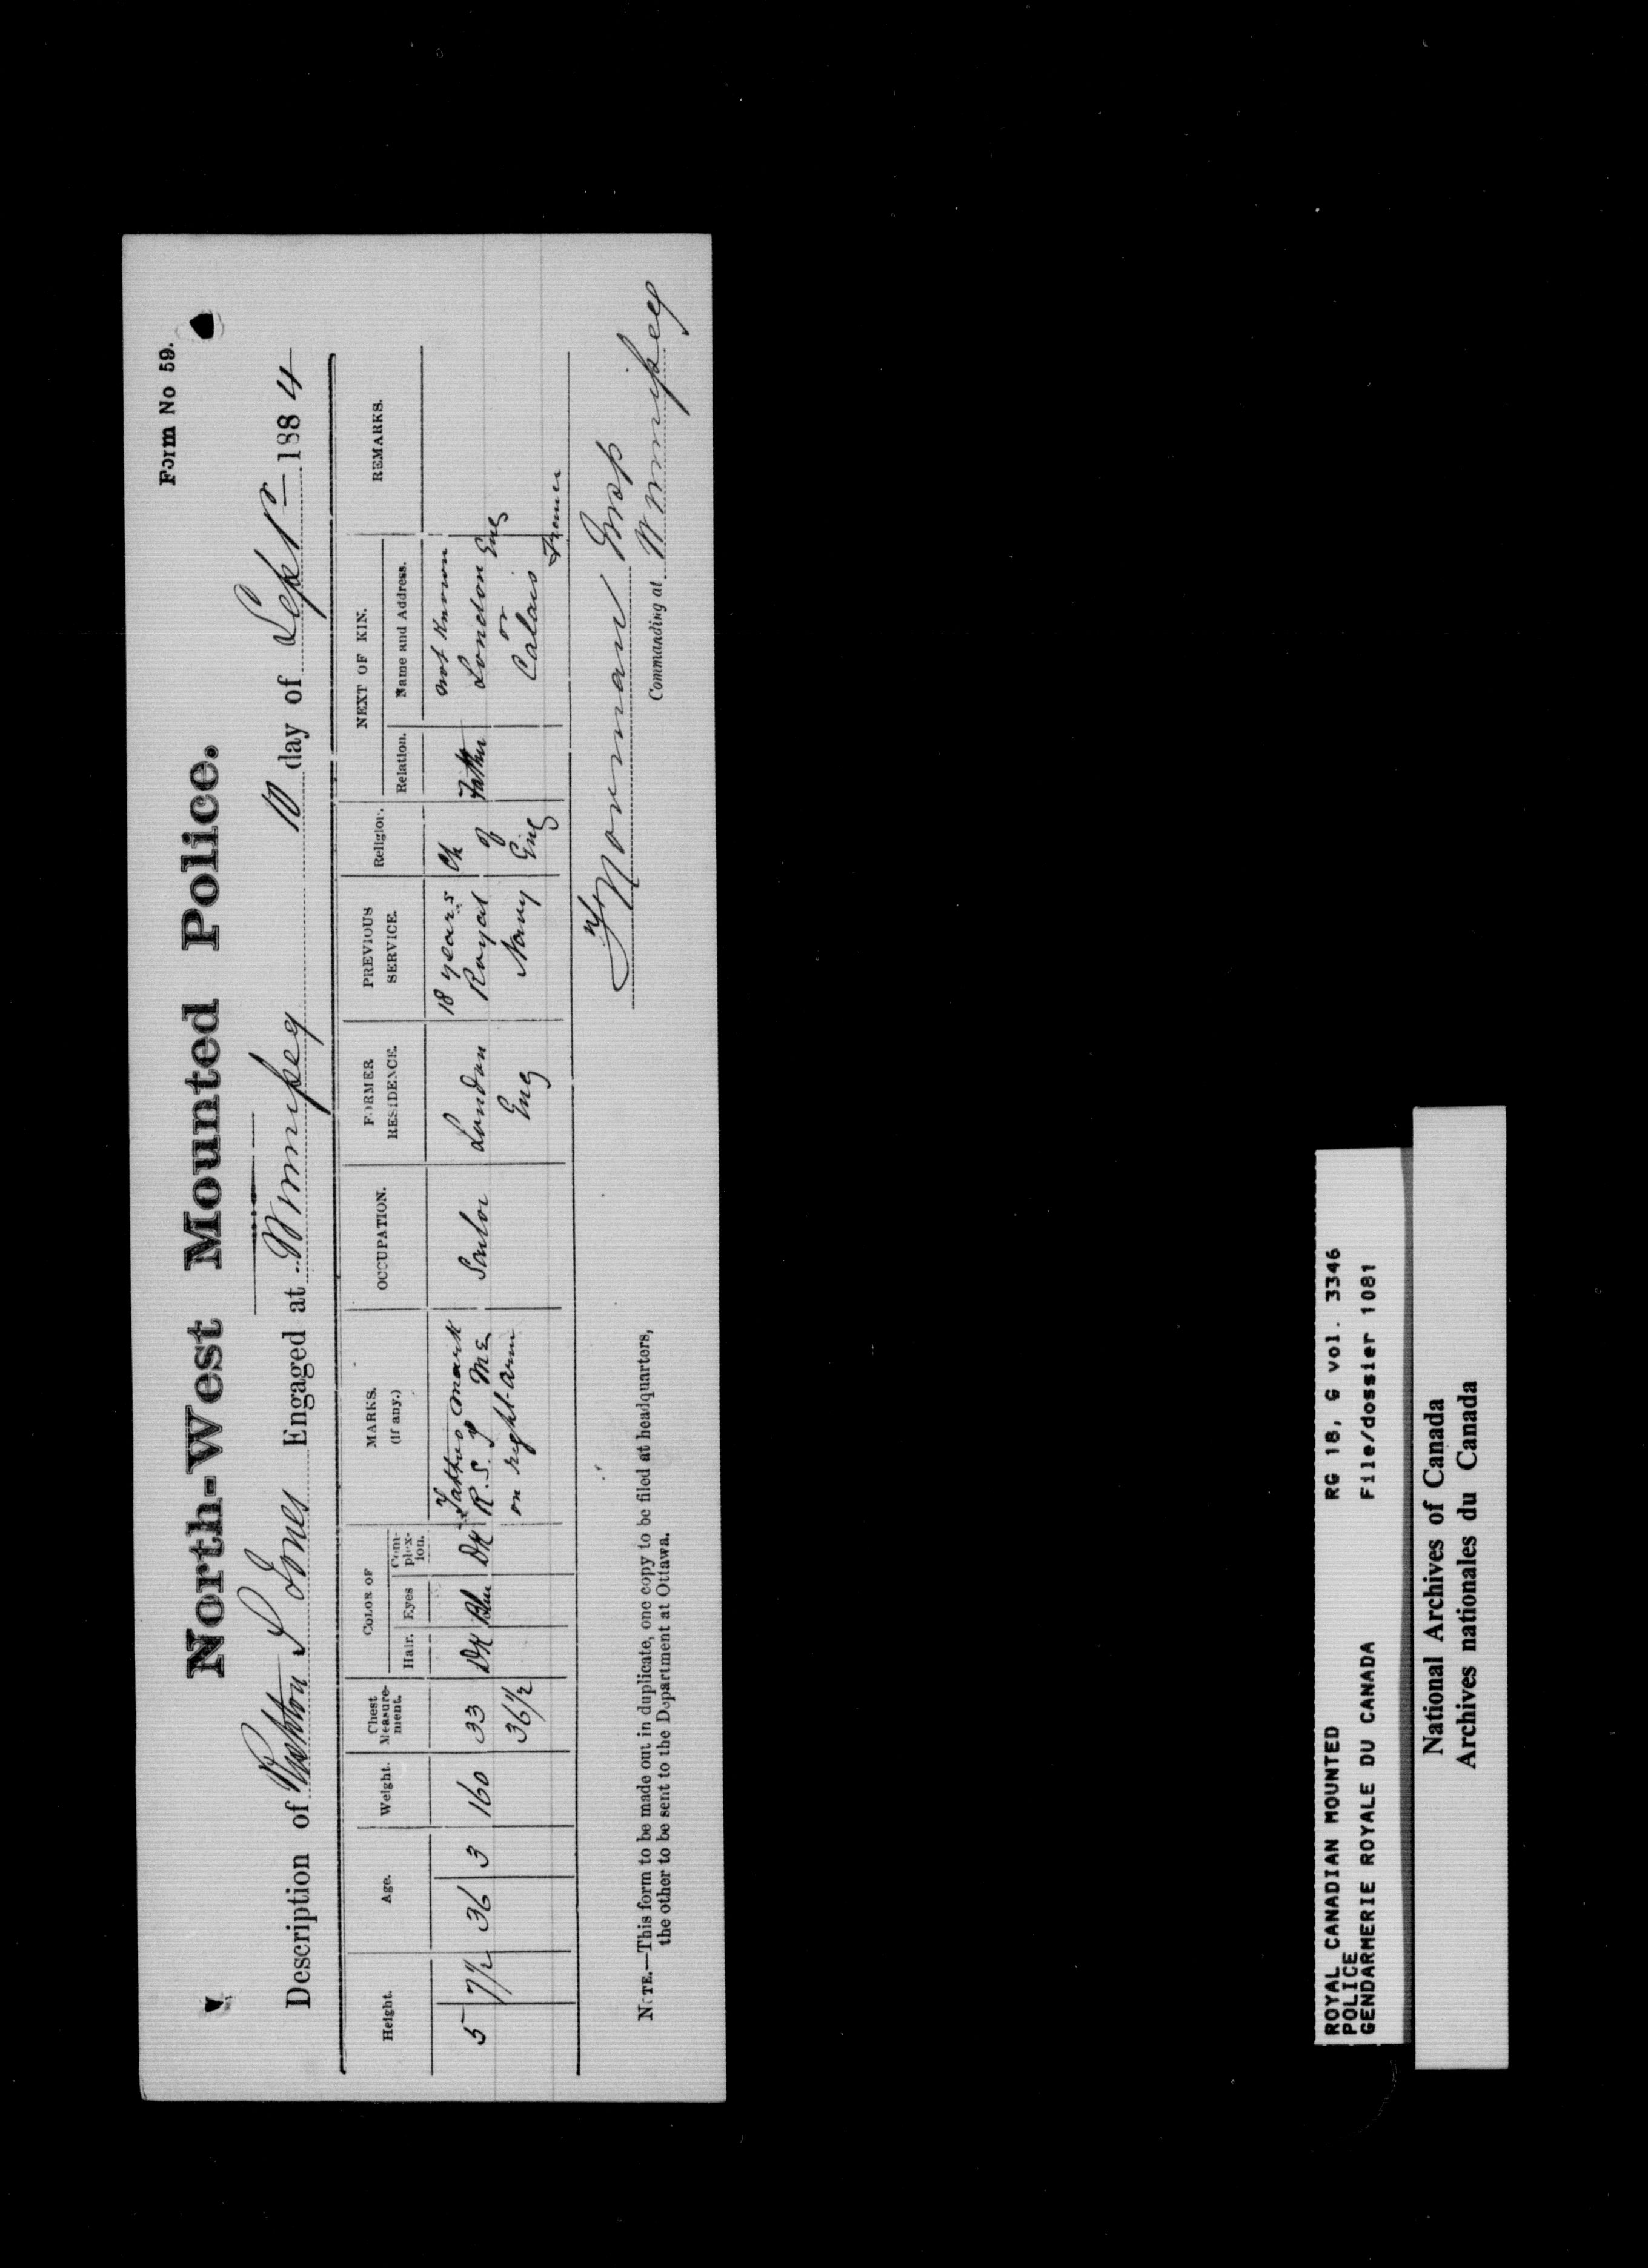 Form No 59.
North-West Mounted Police.
Description of S Jones Engaged at Winnipeg 10 day of Sept 1884
Height. Age. Weight. Chest Measure-ment. COLOR OF MARKS. (If any.) OCCUPATION. FORMER RESIDENCE. PREVIOUS SERVICE. Religion. NEXT OF KIN. REMARKS.
Hair. Eyes Com-plex-ion. Relation. Name and Address.
5 7½ 36 3 160 33 Dk Blue Dk Tattoo mark Sailor London 18 years Ch Father not known
36½ R. S. Royal of London Eng
on right arm Eng Navy Eng or
Calais
France
Norman Insp
Commanding at Winnipeg
NOTE.—This form to be made out in duplicate, one copy to be filed at headquarters,
the other to be sent to the Department at Ottawa.
ROYAL CANADIAN MOUNTED RG 18, G vol. 3346
POLICE
GENDARMERIE ROYALE DU CANADA File/dossier 1081
National Archives of Canada
Archives nationales du Canada